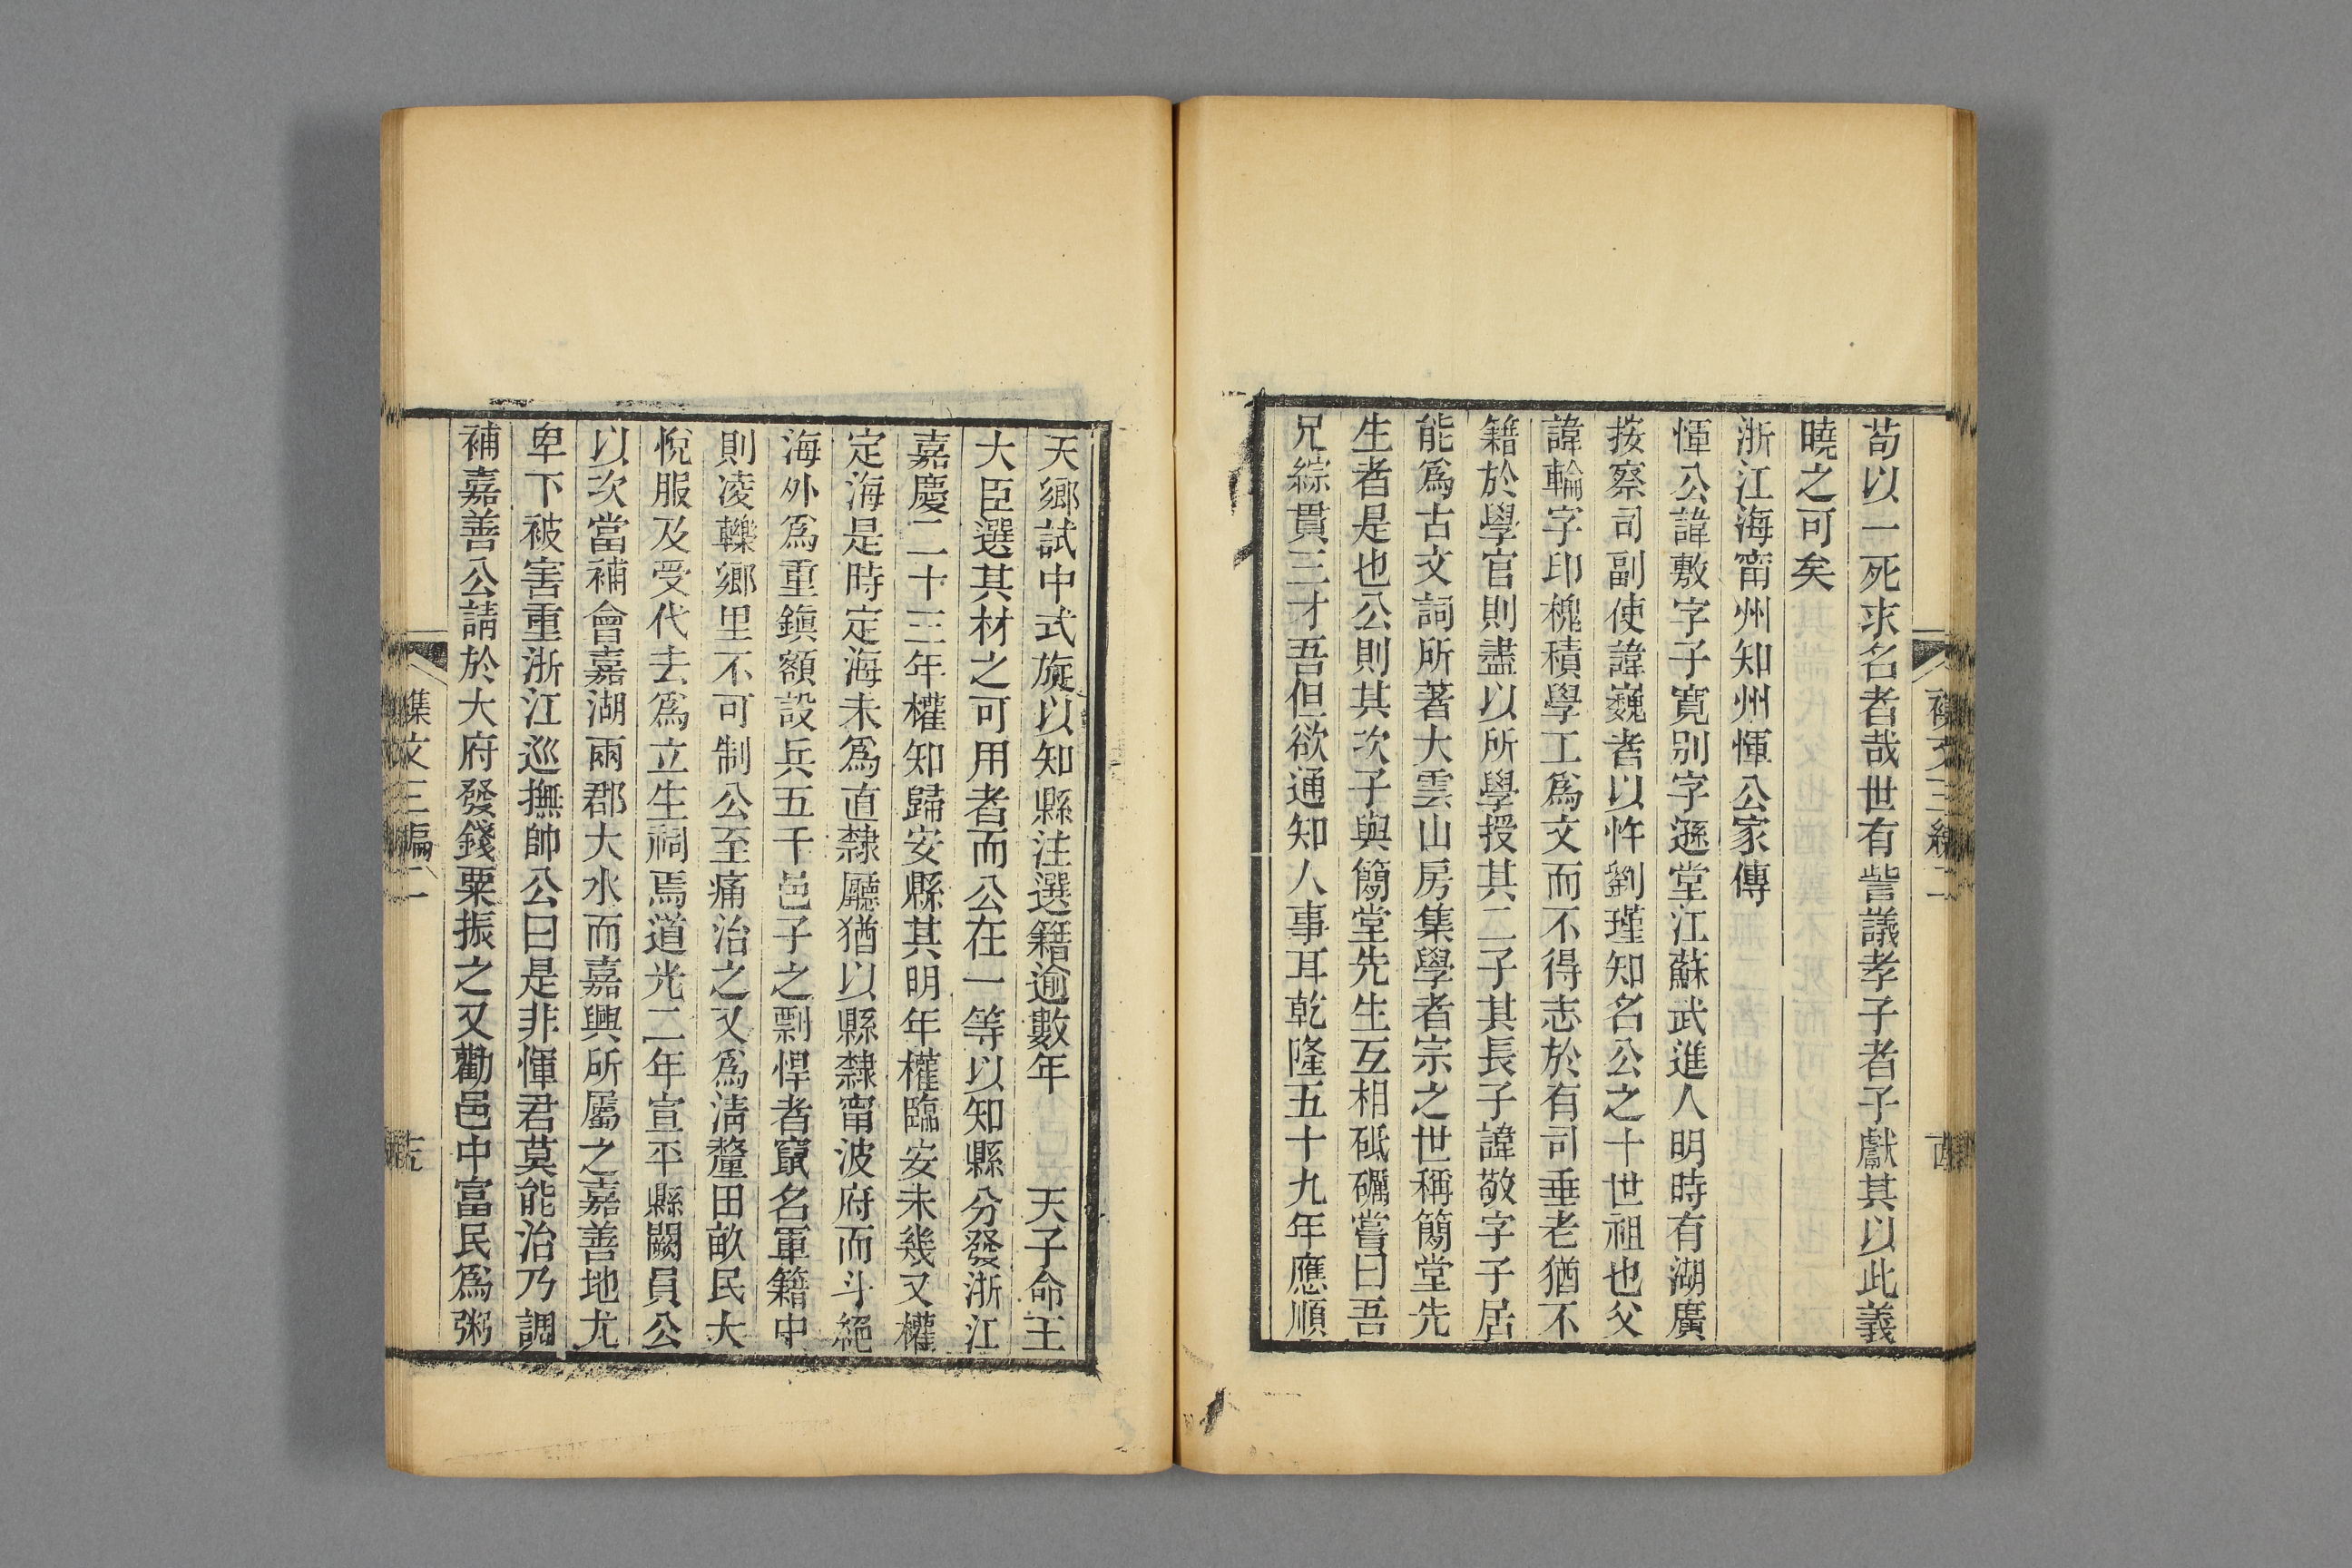 苟以一死求名者哉世有訾議孝子者子獻其以此義
曉之可矣
浙江海甯州知州惲公家傳
惲公諱敷字子寬别字遜堂江蘇武進人明時有湖廣
按察司副使諱巍者以忤劉瑾知名公之十世祖也父
諱輪字印槐積學工爲文而不得志於有司垂老猶不
籍於學官則盡以所學授其二子其長子諱敬字子居
能爲古文詞所著大雲山房集學者宗之世稱簡堂先
生者是也公則其次子與簡堂先生互相砥礪嘗曰吾
兄綜貫三才吾但欲通知人事耳乾隆五十九年應順
天鄉試中式旋以知縣注選籍逾數年 天子命王
大臣選其材之可用者而公在一等以知縣分發浙江
嘉慶二十三年權知歸安縣其明年權臨安未幾又權
定海是時定海未爲直隸廳猶以縣隸甯波府而斗絕
海外爲重鎮額設兵五千邑子之剽悍者竄名軍籍中
則凌轢鄉里不可制公至痛治之又爲淸釐田畝民大
悅服及受代去爲立生祠焉道光二年宣平縣闕員公
以次當補會嘉湖兩郡大水而嘉興所屬之嘉善地尤
卑下被害重浙江巡撫帥公曰是非惲君莫能治乃調
補嘉善公請於大府發錢粟振之又勸邑中富民爲粥
集文三編二